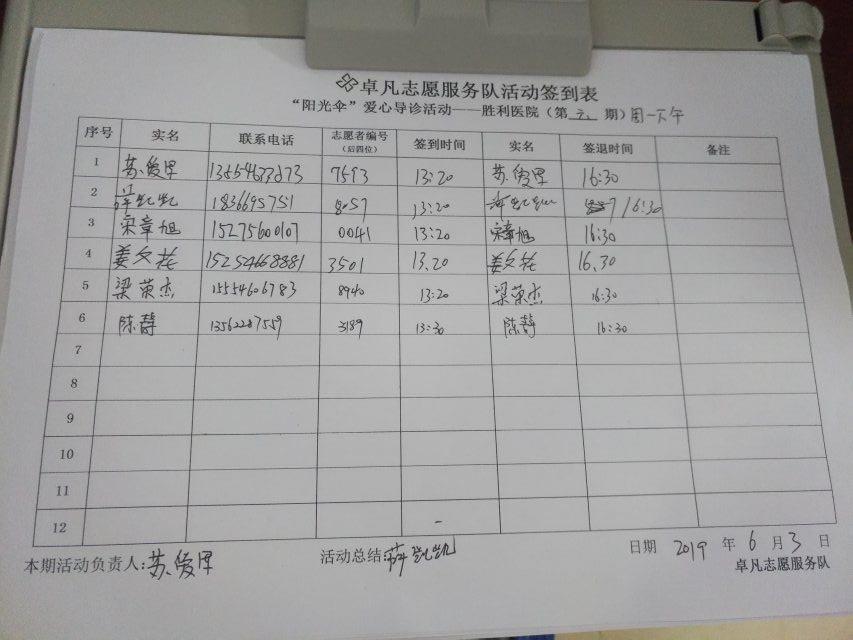 卓凡志愿服务队活动签到表
“阳光伞”爱心导诊活动——胜利医院（第 期）周一下午
序号 实名 联系电话 志愿者编号（后四位） 签到时间 实名 签退时间 备注
1 苏俊男 13654673873 7593 13:20 苏俊男 16:30
2 薛凯凯 183669575 8057 13:20 薛凯凯 16:30
3 宋章旭 15275600107 0041 13:20 宋章旭 16:30
4 姜文花 15254668881 3501 13.20 姜文花 16.30
5 梁荣杰 15554606783 8940 13:20 梁荣杰 16:30
6 陈静 13562287559 3189 13:30 陈静 16:30
7
8
9
10
11
12
本期活动负责人:苏俊男 活动总结:薛凯凯 日期 2019 年 6 月 3 日
卓凡志愿服务队